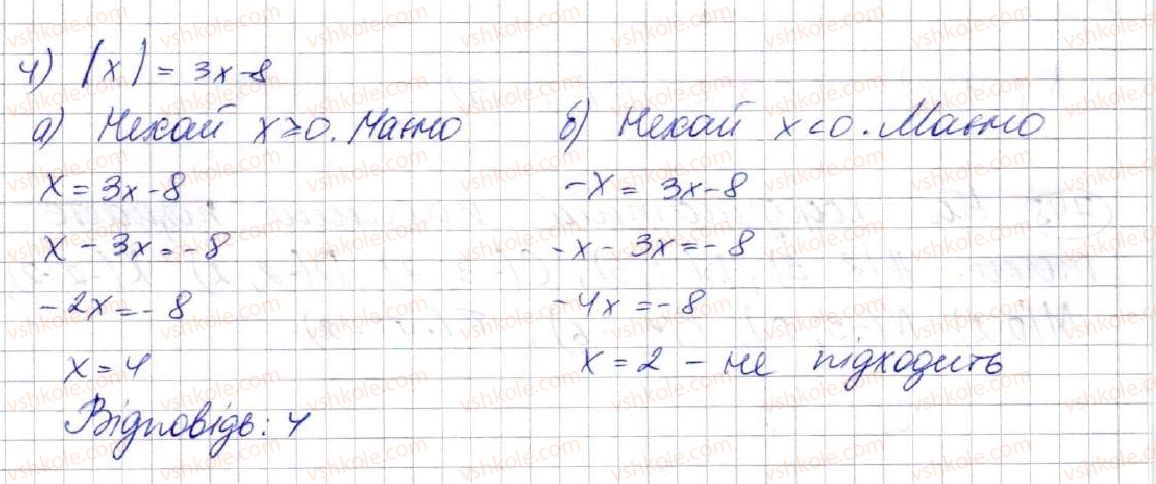 4) |x| = 3x-8
а) Нехай x≥0. Маємо
x = 3x-8
x - 3x = -8
-2x = -8
x = 4
Відповідь: 4
б) Нехай x<0. Маємо
-x = 3x-8
-x - 3x = -8
-4x = -8
x = 2 - не підходить